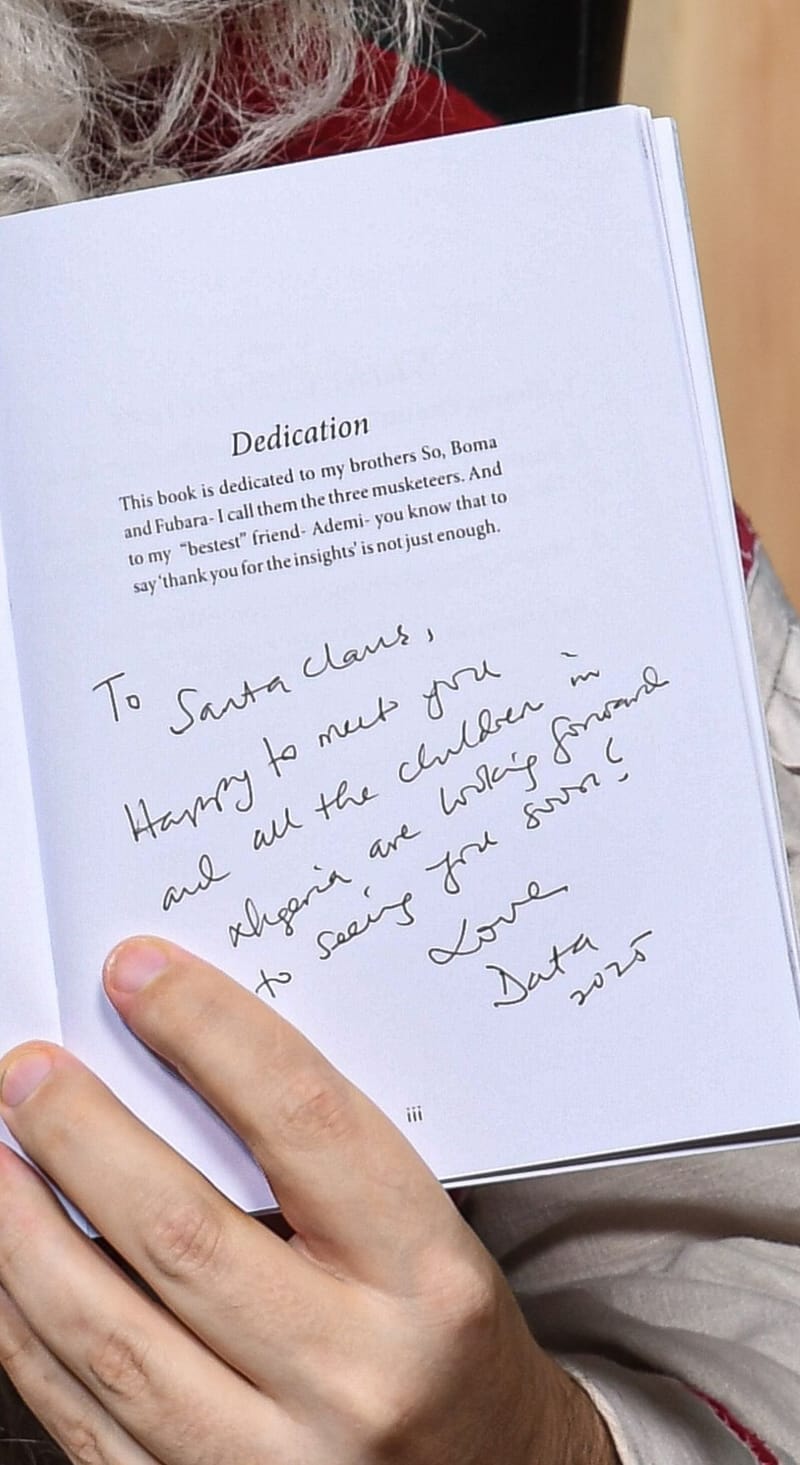 Dedication
This book is dedicated to my brothers So, Boma
and Fubara- I call them the three musketeers. And
to my "bestest" friend- Ademi- you know that to
say 'thank you for the insights' is not just enough.
To Santa Claus,
Happy to meet you
and all the children in
Nigeria are looking forward
to seeing you soon!
Love
Data
2025
iii